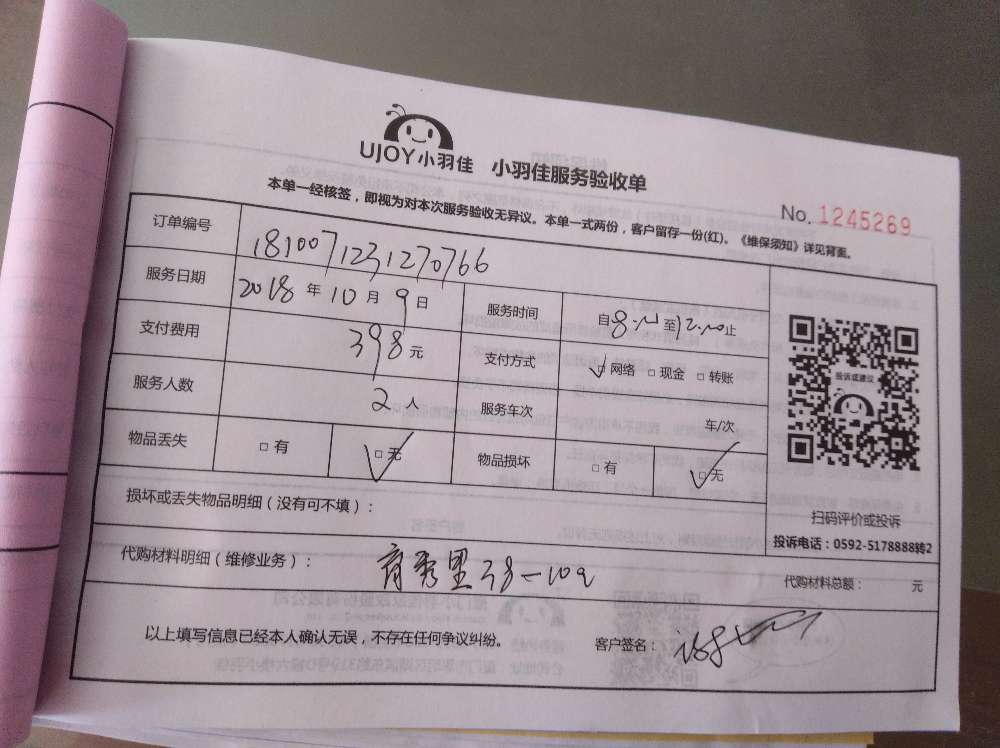 UJOY小羽佳 小羽佳服务验收单
No. 1245269
本单一经核签，即视为对本次服务验收无异议。本单一式两份，客户留存一份(红)。《维保须知》详见背面。
订单编号 1810071231270766
服务日期 2018 年 10 月 9 日 服务时间 自 8:00 至 12:00 止
支付费用 398 元 支付方式 □ 网络 □ 现金 □ 转账
服务人数 2 人 服务车次 车/次
物品丢失 □ 有 □ 无 物品损坏 □ 有 □ 无
投诉或建议
扫码评价或投诉
投诉电话：0592-5178888转2
损坏或丢失物品明细（没有可不填）：
代购材料明细（维修业务）： 育秀里 代购材料总额： 元
以上填写信息已经本人确认无误，不存在任何争议纠纷。 客户签名：